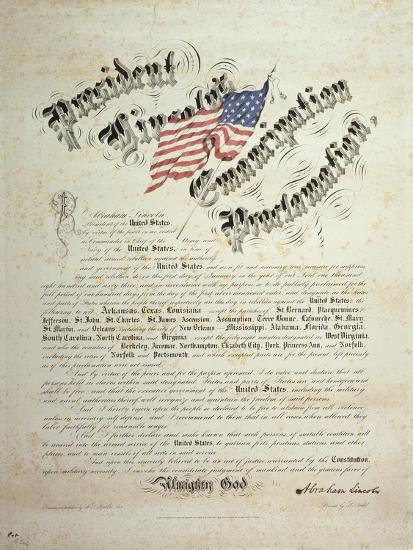 President
Lincoln's
Emancipation
Proclamation.
I, Abraham Lincoln
President of the United States,
by virtue of the power in me vested
as Commander in Chief of the Army and
Navy of the United States, in time of
actual armed rebellion against the authority
and government of the United States, and as a fit and necessary war measure for suppressing
said rebellion, do, on this first day of January, in the year of our Lord one thousand
eight hundred and sixty three, and in accordance with my purpose so to do, publicly proclaimed for the
full period of one hundred days from the day of the first above mentioned order, and designate as the States
and parts of States wherein the people thereof respectively are this day in rebellion against the United States the
following, to wit: Arkansas, Texas, Louisiana except the parishes of St. Bernard, Plaquemines,
Jefferson, St. John, St. Charles, St. James, Ascension, Assumption, Terre Bonne, Lafourche, St. Mary,
St. Martin, and Orleans, including the city of New Orleans, Mississippi, Alabama, Florida, Georgia,
South Carolina, North Carolina, and Virginia except the forty eight counties designated as West Virginia,
and also the counties of Berkeley, Accomac, Northampton, Elizabeth City, York, Princess Ann, & Norfolk,
including the cities of Norfolk and Portsmouth, and which excepted parts are, for the present, left precisely
as if this proclamation were not issued.
And by virtue of the power and for the purpose aforesaid, I do order and declare that all
persons held as slaves within said designated States and parts of States are and henceforward
shall be free; and that the executive government of the United States, including the military
and naval authorities thereof, will recognize and maintain the freedom of said persons.
And I hereby enjoin upon the people so declared to be free to abstain from all violence
unless in necessary self defence, and I recommend to them that in all cases when allowed they
labor faithfully for reasonable wages.
And I further declare and make known that such persons, of suitable condition, will
be received into the armed service of the United States, to garrison forts, positions, stations and other
places, and to man vessels of all sorts in said service.
And upon this, sincerely believed to be an act of justice, warranted by the Constitution,
upon military necessity, I invoke the considerate judgment of mankind and the gracious favor of
Almighty God
Abraham Lincoln